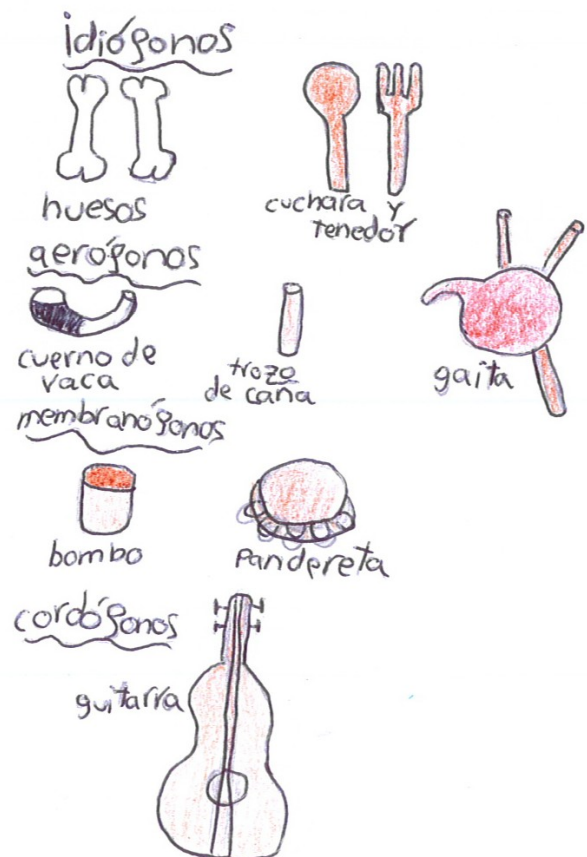 idiófonos
huesos
cuchara y
tenedor
aerófonos
cuerno de
vaca
trozo
de caña
gaita
membranófonos
bombo
pandereta
cordófonos
guitarra